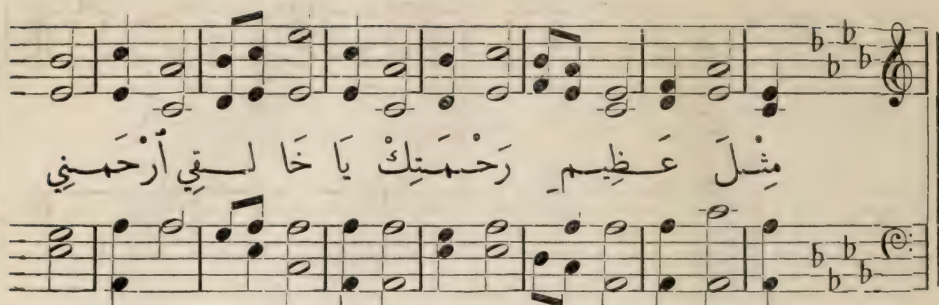 مِثْلَ عَظِيمِ رَحْمَتِكْ يَا خَالِقِي أرْحَمْنِي